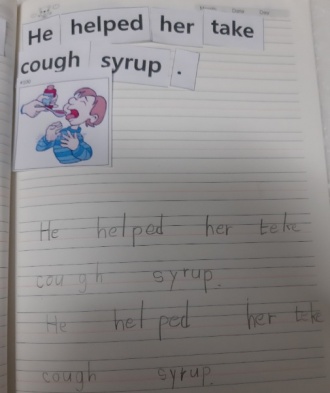 He helped her take
cough syrup .
He helped her teke
cough syrup.
He helped her teke
cough syrup.